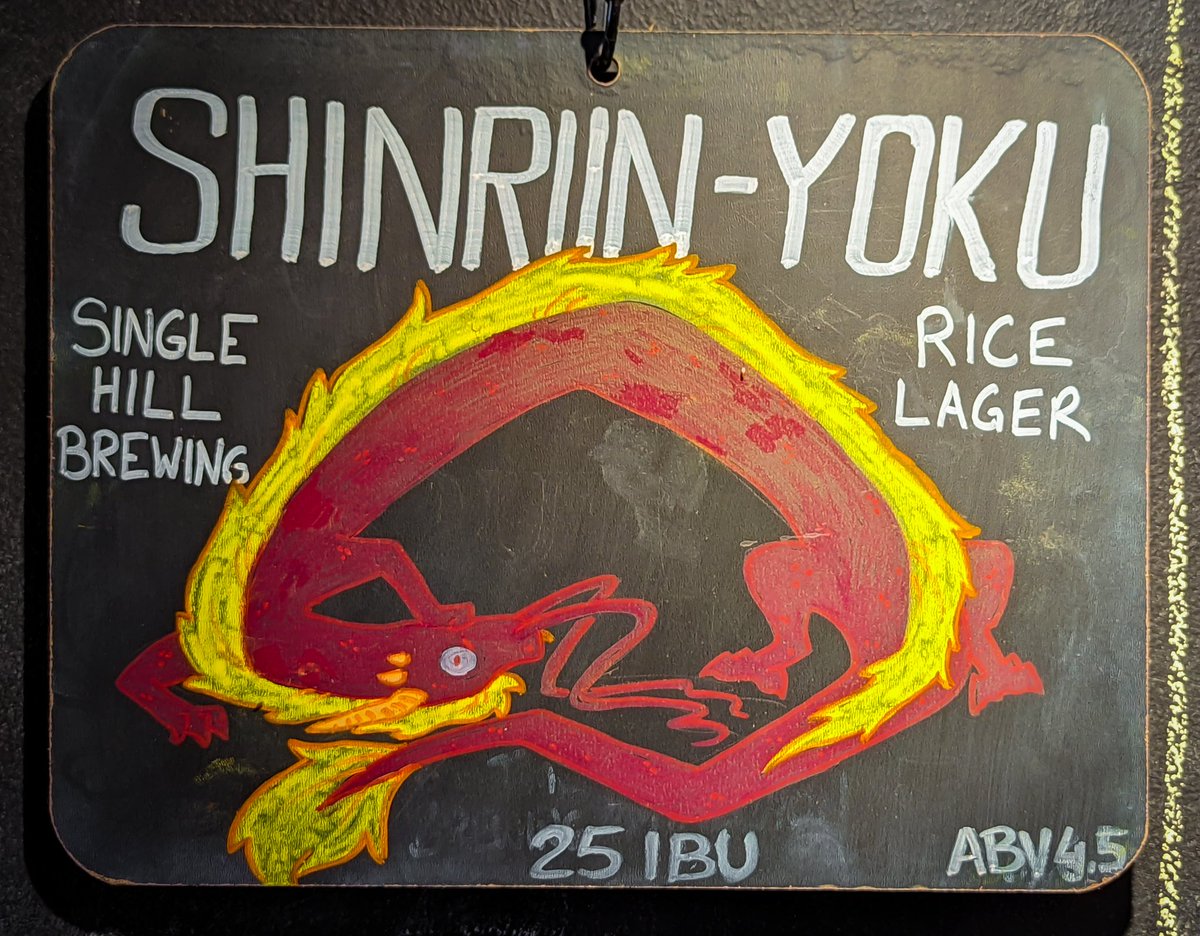 SHINRIIN-YOKU
SINGLE
HILL
BREWING
RICE
LAGER
25 IBU
ABV 4.5